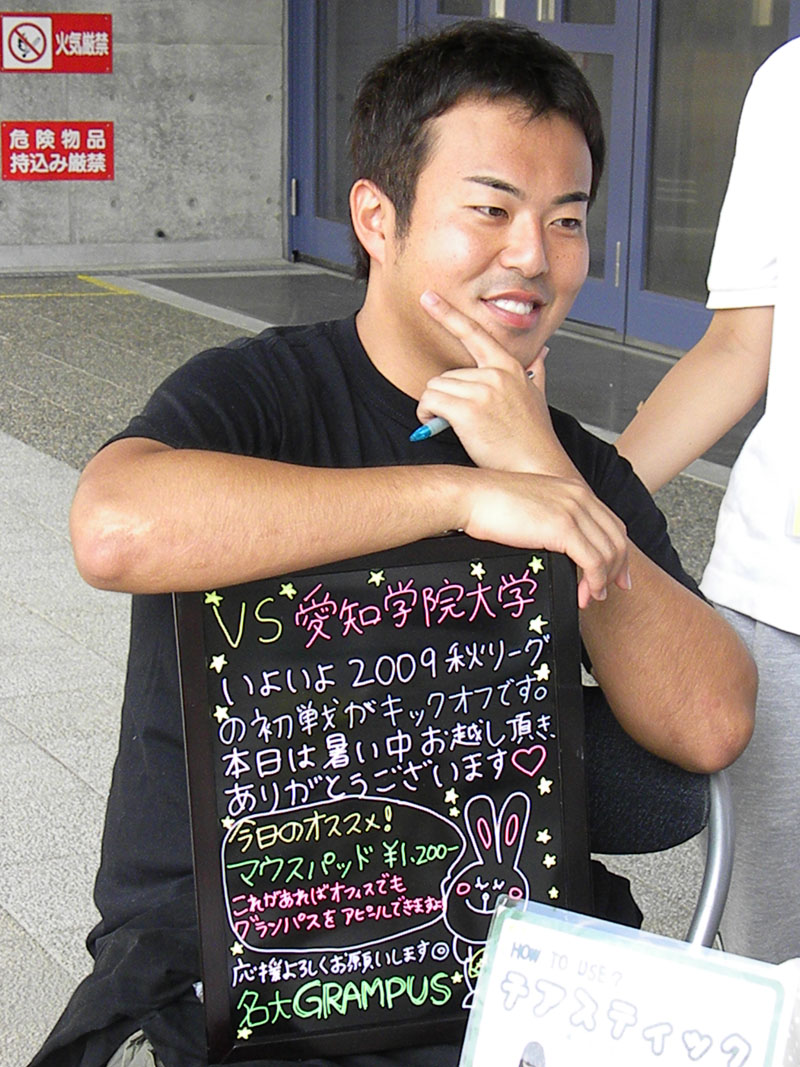 火気厳禁
危険物品
持込み厳禁
VS愛知学院大学
いよいよ2009秋リーグ
の初戦がキックオフです。
本日は暑い中お越し頂き、
ありがとうございます♡
今日のオススメ!
マウスパッド ¥1,200-
これがあればオフィスでも
グランパスをアピールできますよ
応援よろしくお願いします◎
名大GRAMPUS
HOW TO USE?
チアスティック